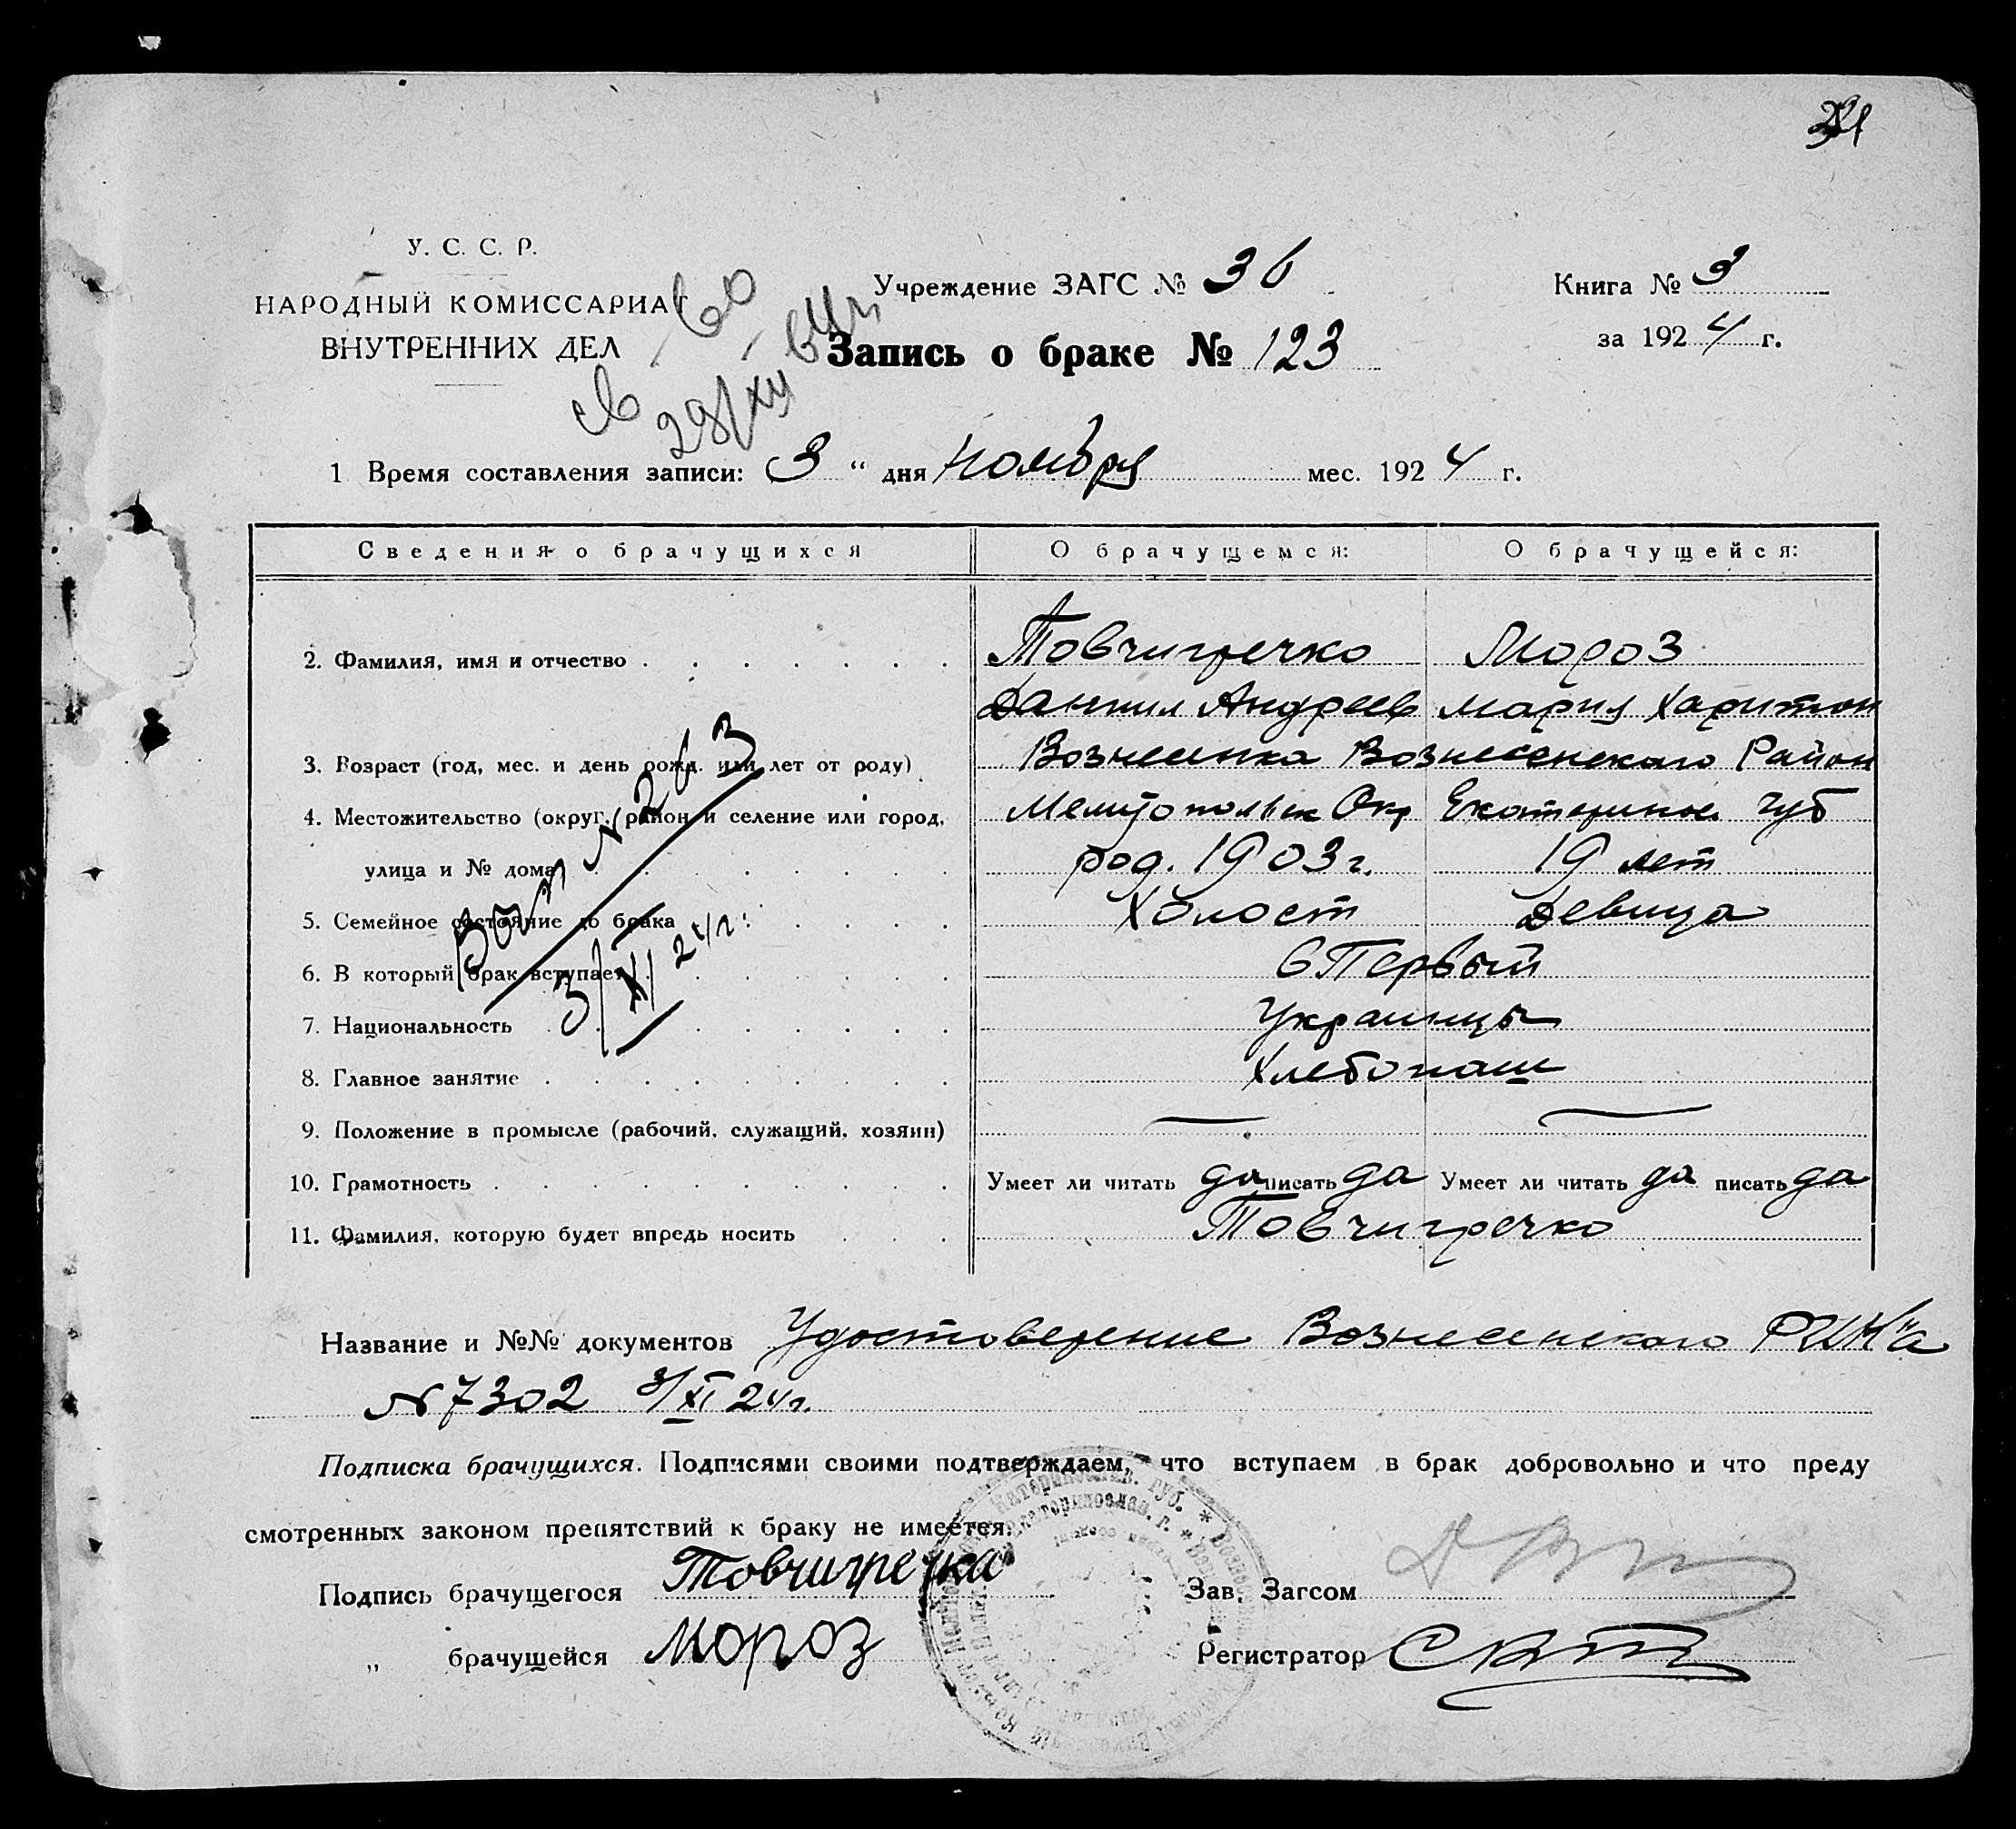 У. С. С. Р.
НАРОДНЫЙ КОМИССАРИАТ
ВНУТРЕННИХ ДЕЛ
Учреждение ЗАГС № 36
Книга № 3
за 1924 г.
Запись о браке № 123
1 Время составления записи: 3 " дня ноября мес. 1924 г.
Сведения о брачущихся О брачущемся: О брачущейся:
2. Фамилия, имя и отчество Товчигречко Мороз
Даниил Андреев Мария Харитон
3. Возраст (год, мес. и день рожд. или лет от роду) Вознесенка Вознесенского Район
4. Местожительство (округ, район и селение или город, Мелитопольск Окр Екатеринос. губ
улица и № дома) род. 1903 г. 19 лет
5. Семейное состояние до брака Холост Девица
6. В который брак вступает в Первый
7. Национальность Украинцы
8. Главное занятие Хлебопаш
9. Положение в промысле (рабочий, служащий, хозяин)
10. Грамотность Умеет ли читать да писать да Умеет ли читать да писать да
11. Фамилия, которую будет впредь носить Товчигречко
№ 263
3/XI 24 г.
Название и №№ документов Удостоверение Вознесенского РИК'а
N 7302 3/XI 24 г.
Подписка брачущихся. Подписями своими подтверждаем, что вступаем в брак добровольно и что преду
смотренных законом препятствий к браку не имеется.
Подпись брачущегося Товчигречка
Зав. Загсом
" брачущейся Мороз
Регистратор